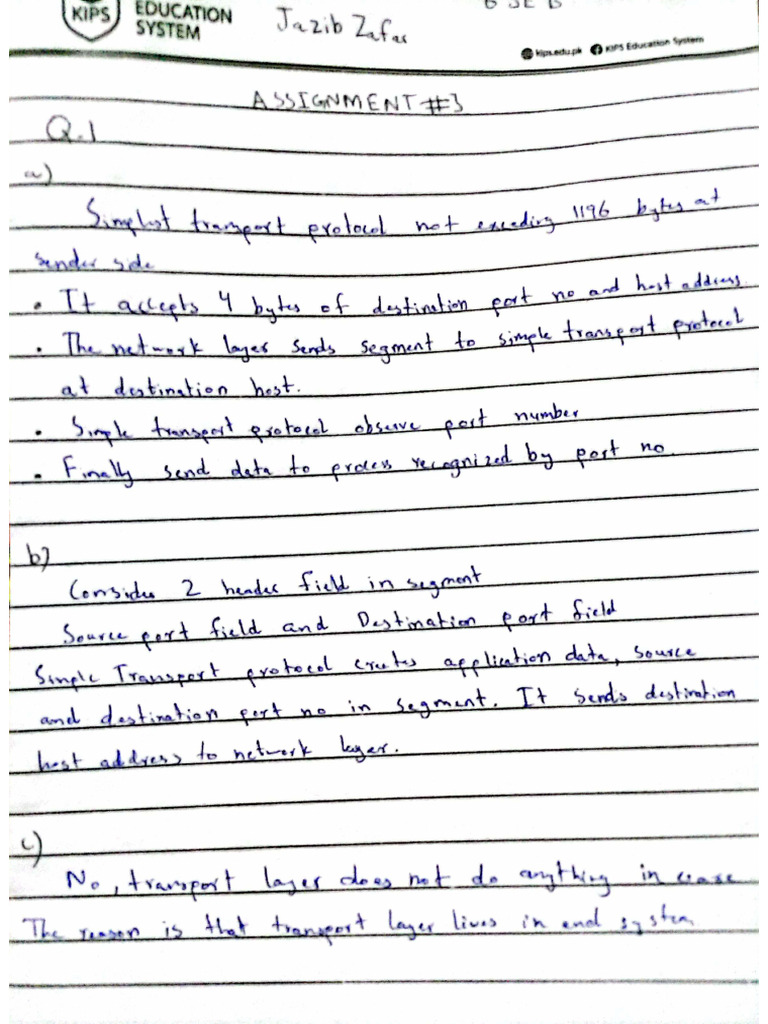 KIPS EDUCATION
SYSTEM
Jazib Zafar
kips.edu.pk KIPS Education System
ASSIGNMENT #3
Q.1
a)
Simplest transport protocol not exceding 1196 bytes at
sender side
• It accepts 4 bytes of destination port no and host address.
• The network layer sends segment to simple transport protocol
at destination host.
• Simple transport protocol observe port number
• Finally send data to process recognized by port no.
b)
Consider 2 header field in segment
Source port field and Destination port field
Simple Transport protocol creates application data, source
and destination port no in segment. It sends destination
host address to network layer.
c)
No, transport layer does not do anything in
The reason is that transport layer lives in end system